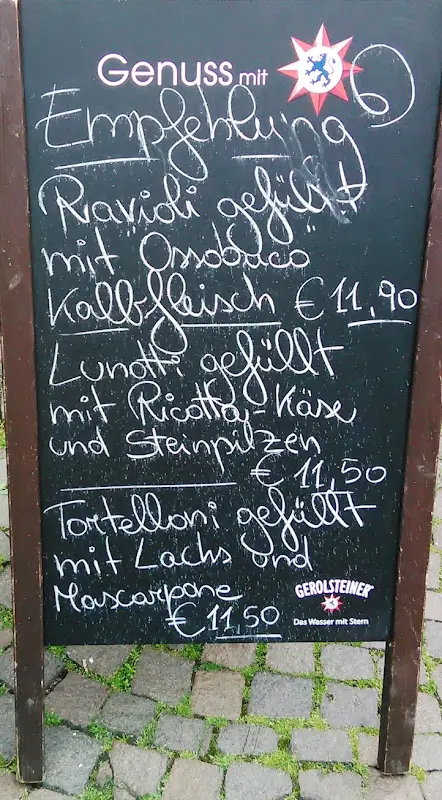 Genuss mit
Empfehlung
Ravioli gefüllt
mit Ossobuco
Kalbfleisch € 11,90
Lunotti gefüllt
mit Ricotta-Käse
und Steinpilzen
€ 11,50
Tortelloni gefüllt
mit Lachs und
Mascarpone
€ 11,50
GEROLSTEINER
Das Wasser mit Stern